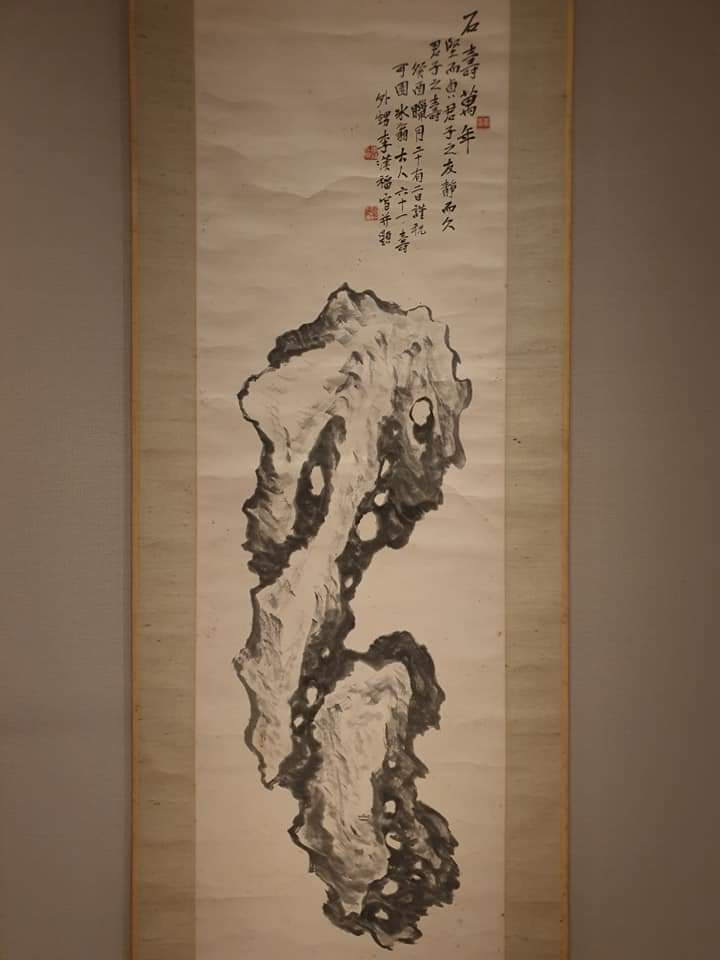 石壽萬年
堅而貞君子之友靜而久
君子之壽
癸酉臘月二十有二日謹祝
可園冰翁大人六十一壽
外甥李漢福寫并題